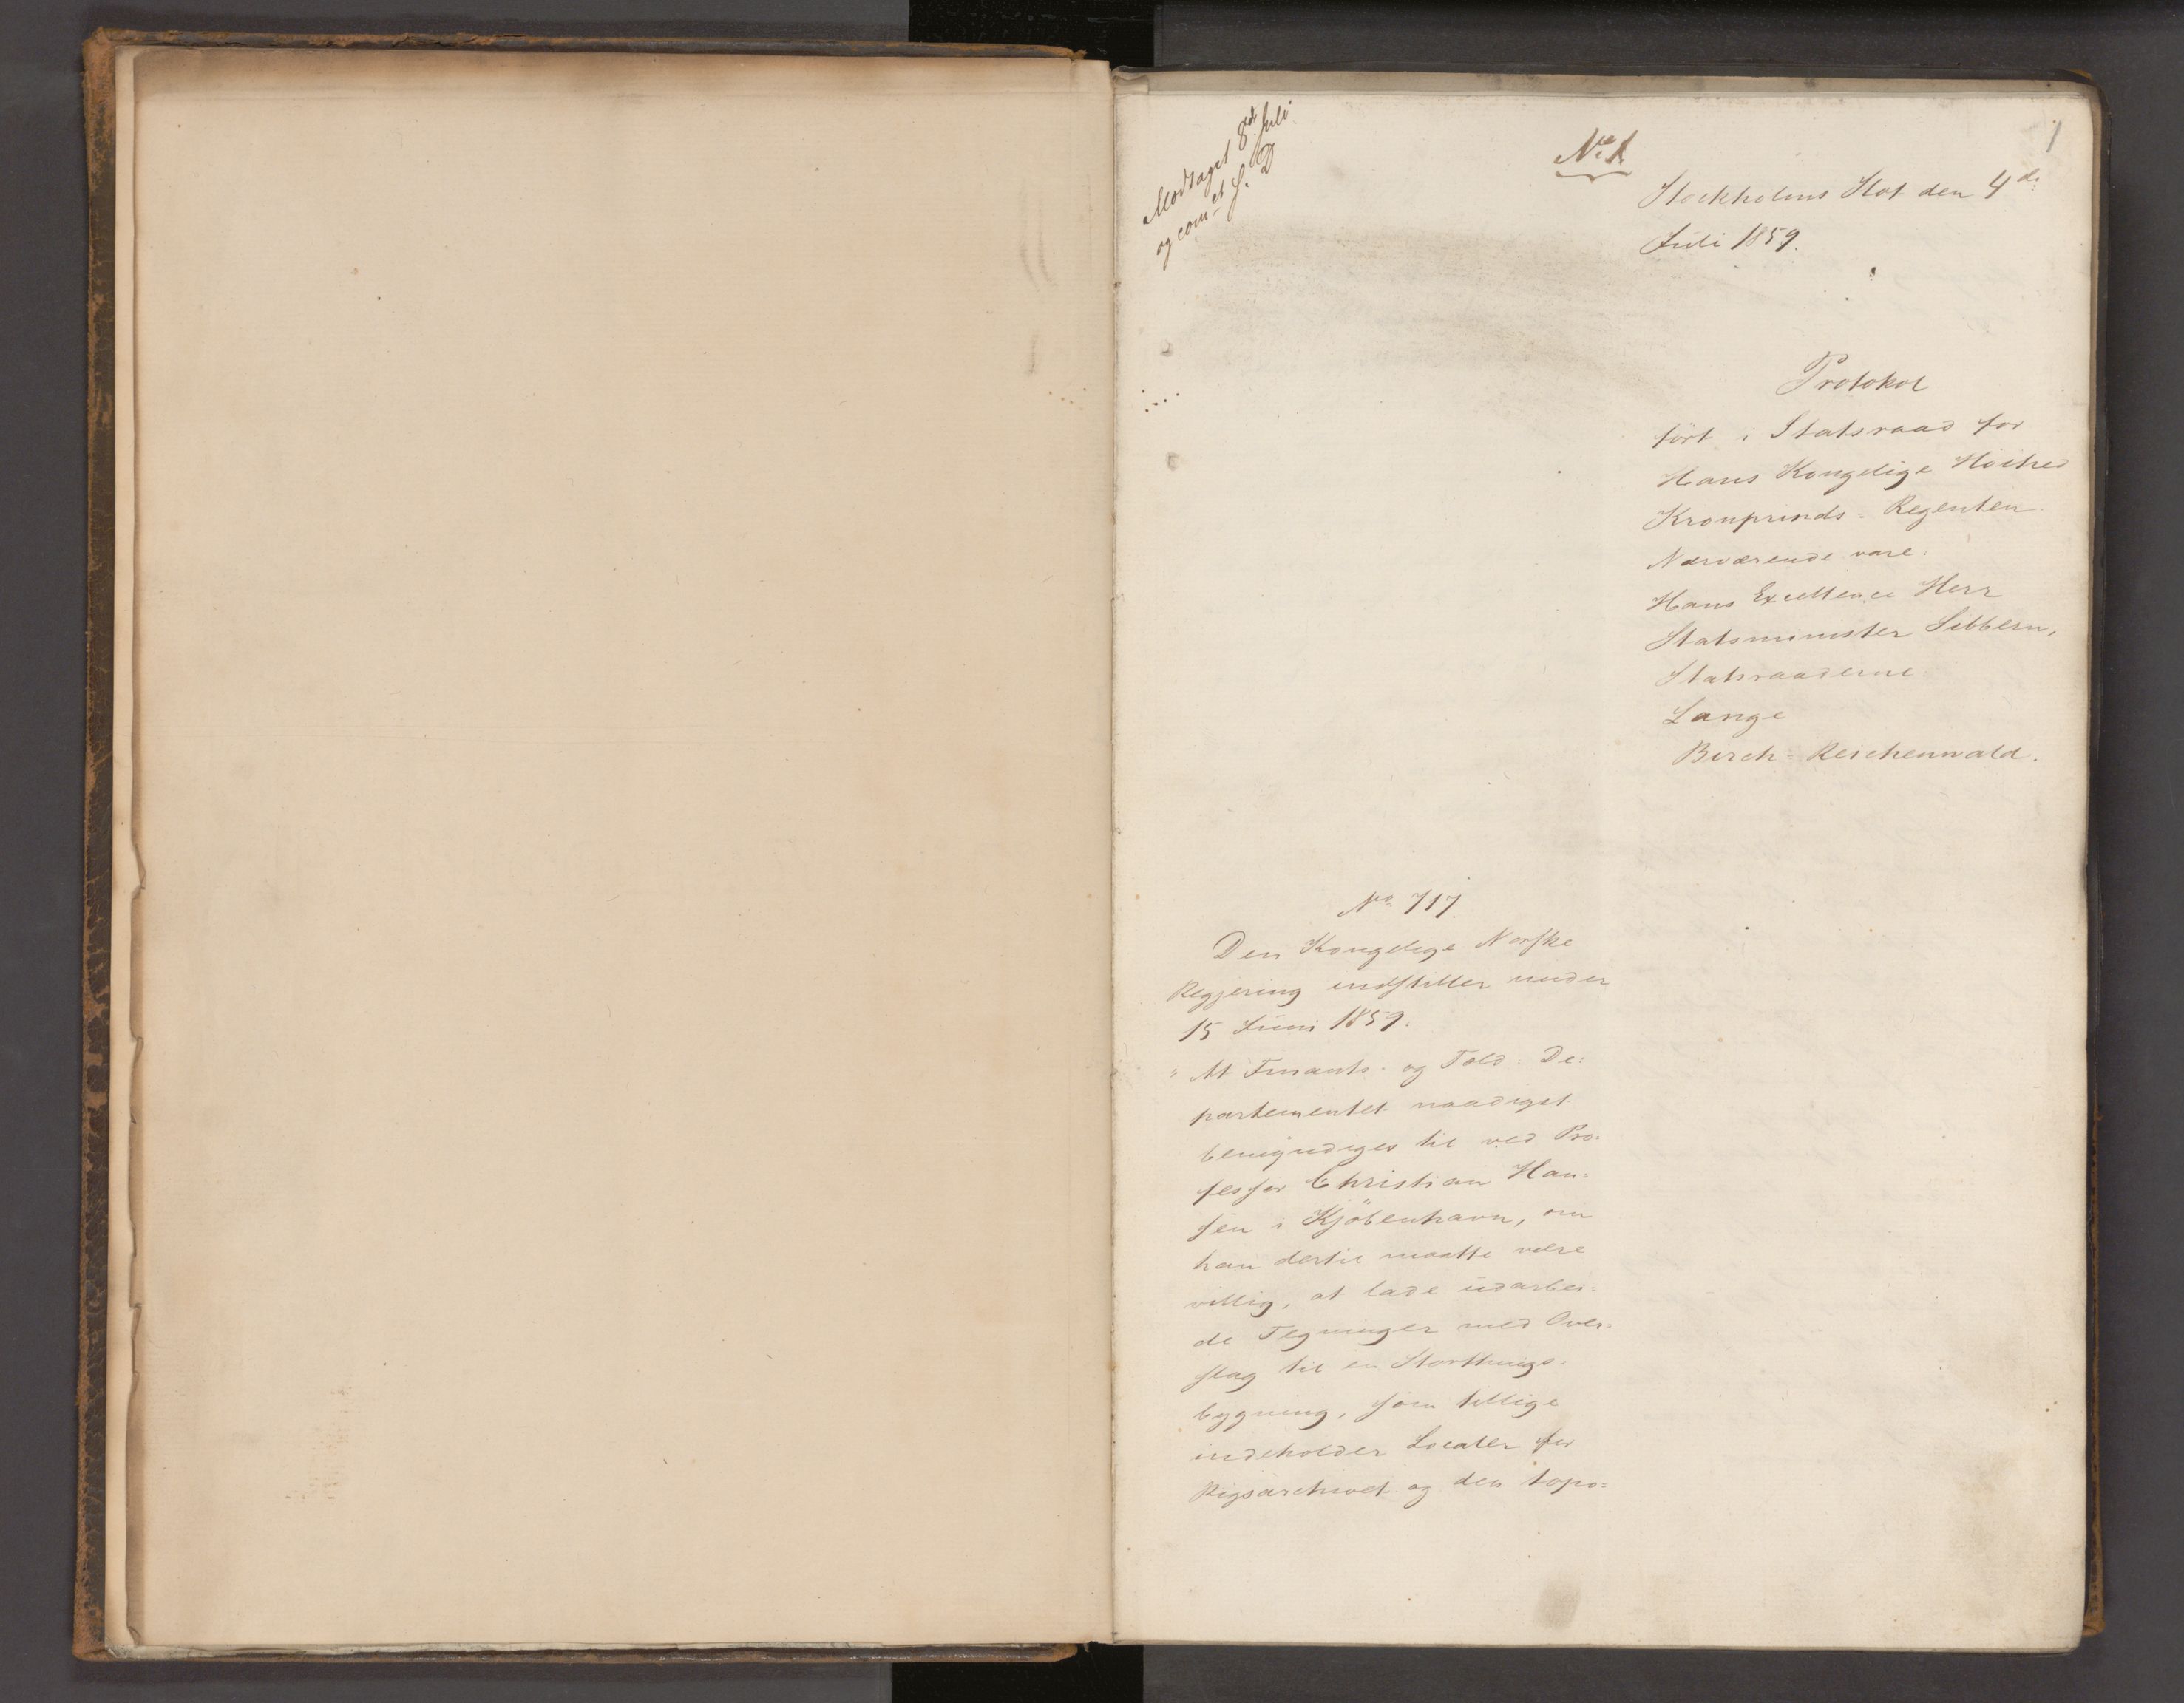 Modtaget 8de Juli
og com et S. D
No 1.
1
Stockholms Slot den 4de
Juli 1859.
Protokol
ført i Statsraad for
Hans Kongelige Høihed
Kronprinds-Regenten.
Nærværende vare.
Hans Excellence Herr
Statsminister Sibbern,
Statsraaderne
Lange
Birch-Reichenwald.
No 717.
Den Kongelige Norske
Regjering indstiller under
15 Juni 1859.
"At Finants- og Told-De-
partementet naadigst
bemyndiges til ved Pro-
fessor Christian Han-
sen i Kjöbenhavn, om
han dertil maatte være
villig, at lade udarbei-
de Tegninger med Over-
slag til en Storthings-
bygning, som tillige
indeholder Localer for
Rigsarchivet og den topo-